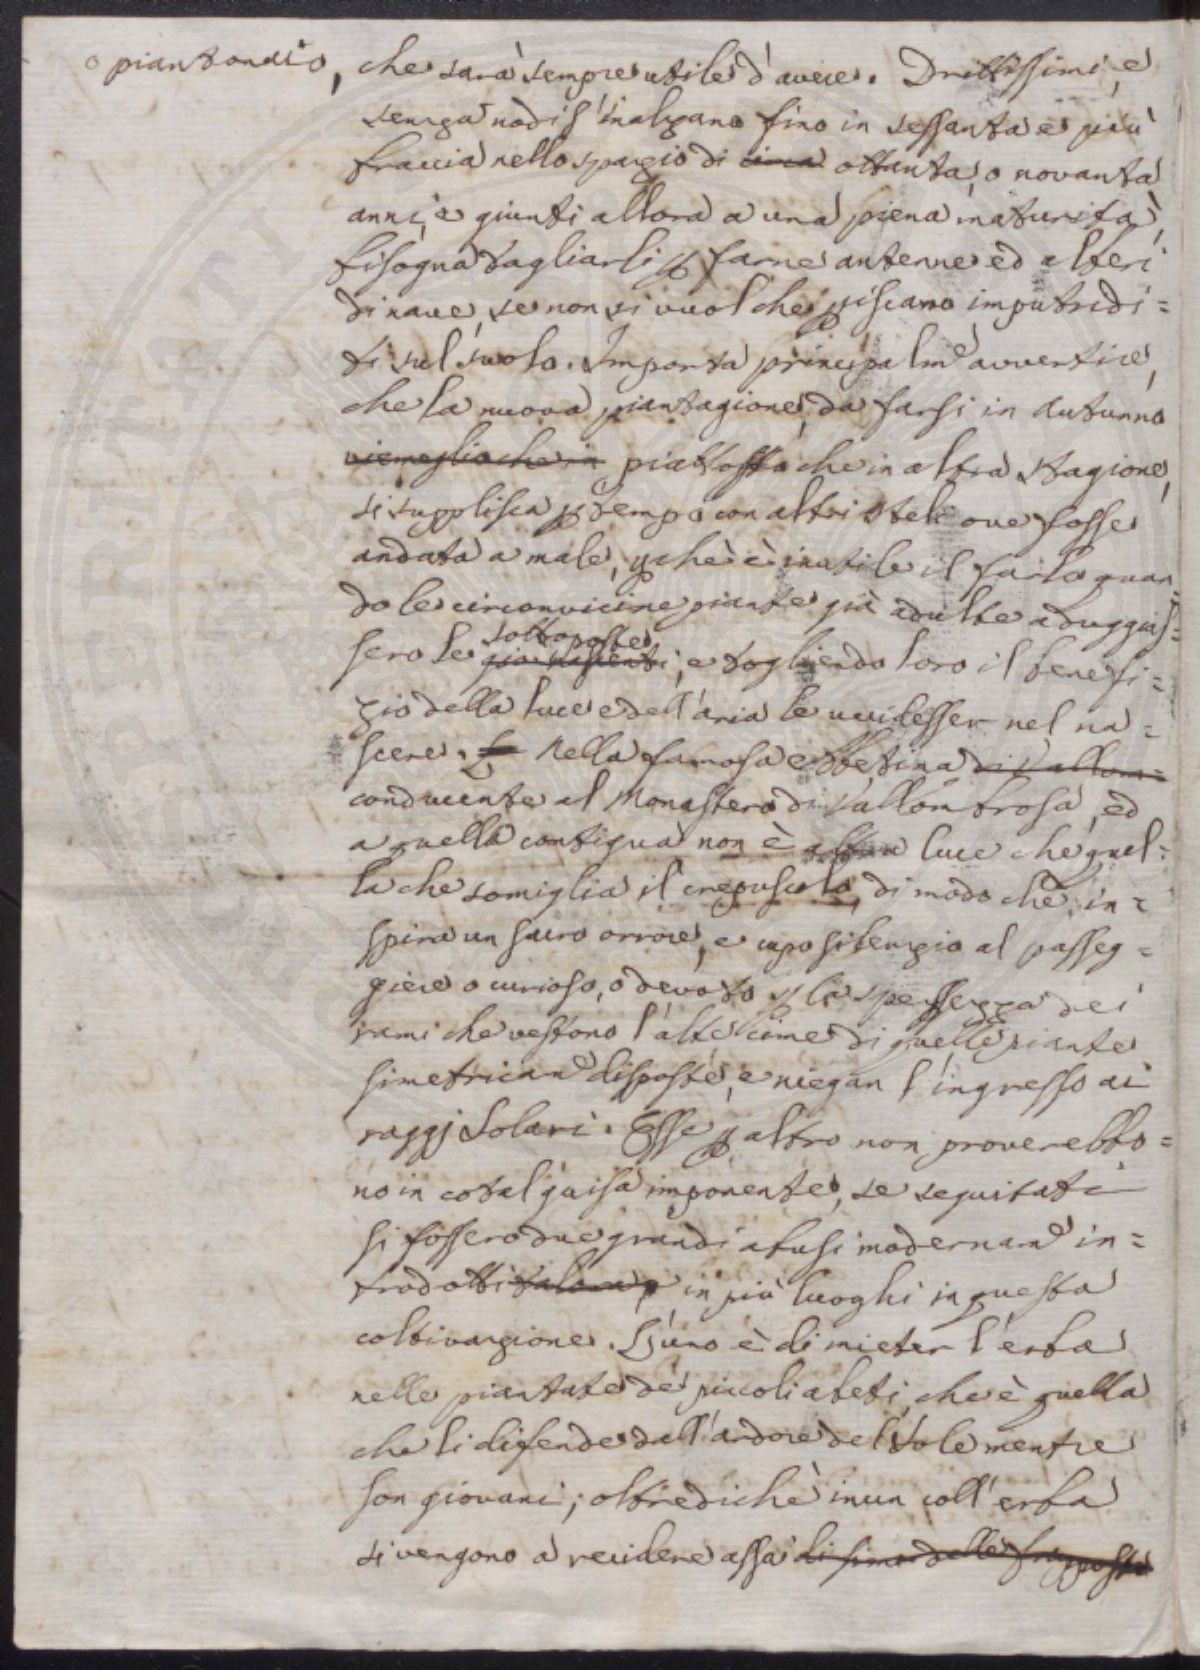 o piantonaio, che sarà sempre utile d'avere. Drittissimi, e
senza nodi s'inalzano fino in sessanta e più
braccia nello spazio di circa ottanta, o novanta
anni, e giunti allora a una piena maturità,
bisogna tagliarli p farne antenne ed alberi
di nave, se non si vuol che piscano imputridi=
ti sul suolo. Importa principalme avvertire,
che la nuova piantagione, da farsi in Autunno
viemeglio che in piuttosto che in altra stagione,
si supplisca p tempo con altri steli ove fosse
andata a male, pchè è inutile il farlo quan=
do le circonvicine piante già adulte aduggias=
sottoposte
sero le già nascenti, e togliendo loro il benefi=
zio della luce e dell'aria le uccidesser nel na=
scere. Nella famosa abetina di Vallom=
conducente al Monastero di Vallombrosa, ed
a quella contigua non è altra luce che quel=
la che somiglia il crepuscolo, di modo che in=
spira un sacro orrore, e cupo silenzio al passeg=
giere o curioso, o devoto p la spessezza dei
rami che vestono l'alte cime di quelle piante
simetricame disposte, e niegan l'ingresso ai
raggj Solari. Esse p altro non proverebbo=
no in cotal guisa imponente, se seguitati
si fossero due grandi abusi modername in=
trodotti talora p in più luoghi in questa
coltivazione. L'uno è di mieter l'erba
nelle piantate de' piccoli abeti, che è quella
che li difende dall'ardore del Sole mentre
son giovani; oltredichè in un coll'erba
si vengono a recidere assai